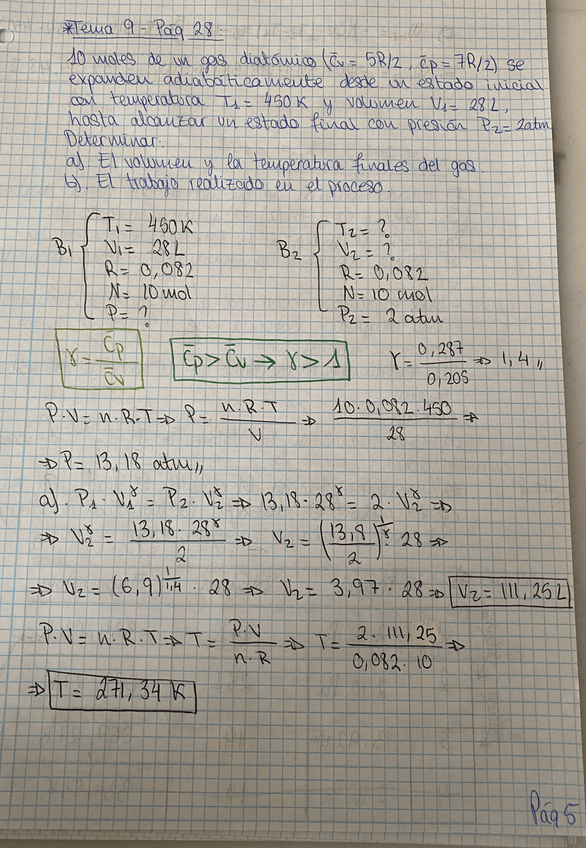 *Tema 9 - Pág 28:
10 moles de un gas diatómico (c̄v = 5R/2, c̄p = 7R/2) se
expanden adiabáticamente desde un estado inicial
con temperatura T₁ = 450 K y volumen V₁ = 28 L,
hasta alcanzar un estado final con presión P₂ = 2 atm
Determinar.
a) El volumen y la temperatura finales del gas.
b). El trabajo realizado en el proceso.
B₁ { T₁ = 450K
V₁ = 28L
R = 0,082
N = 10 mol
P = ?
B₂ { T₂ = ?
V₂ = ?
R = 0,082
N = 10 mol
P₂ = 2 atm
γ = C̄p / C̄v
C̄p > C̄v → γ > 1
γ = 0,287 / 0,205 ⇒ 1,4 //
P·V = n·R·T ⇒ P = n·R·T / V ⇒ 10·0,082·450 / 28 ⇒
⇒ P = 13,18 atm //
a). P₁·V₁^γ = P₂·V₂^γ ⇒ 13,18·28^γ = 2·V₂^γ ⇒
⇒ V₂^γ = 13,18·28^γ / 2 ⇒ V₂ = (13,8 / 2)^1/γ · 28 ⇒
⇒ V₂ = (6,9)^1/1,4 · 28 ⇒ V₂ = 3,97·28 ⇒ V₂ = 111,25L
P·V = n·R·T ⇒ T = P·V / n·R ⇒ T = 2·111,25 / 0,082·10 ⇒
⇒ T = 271,34 K
Pág 5